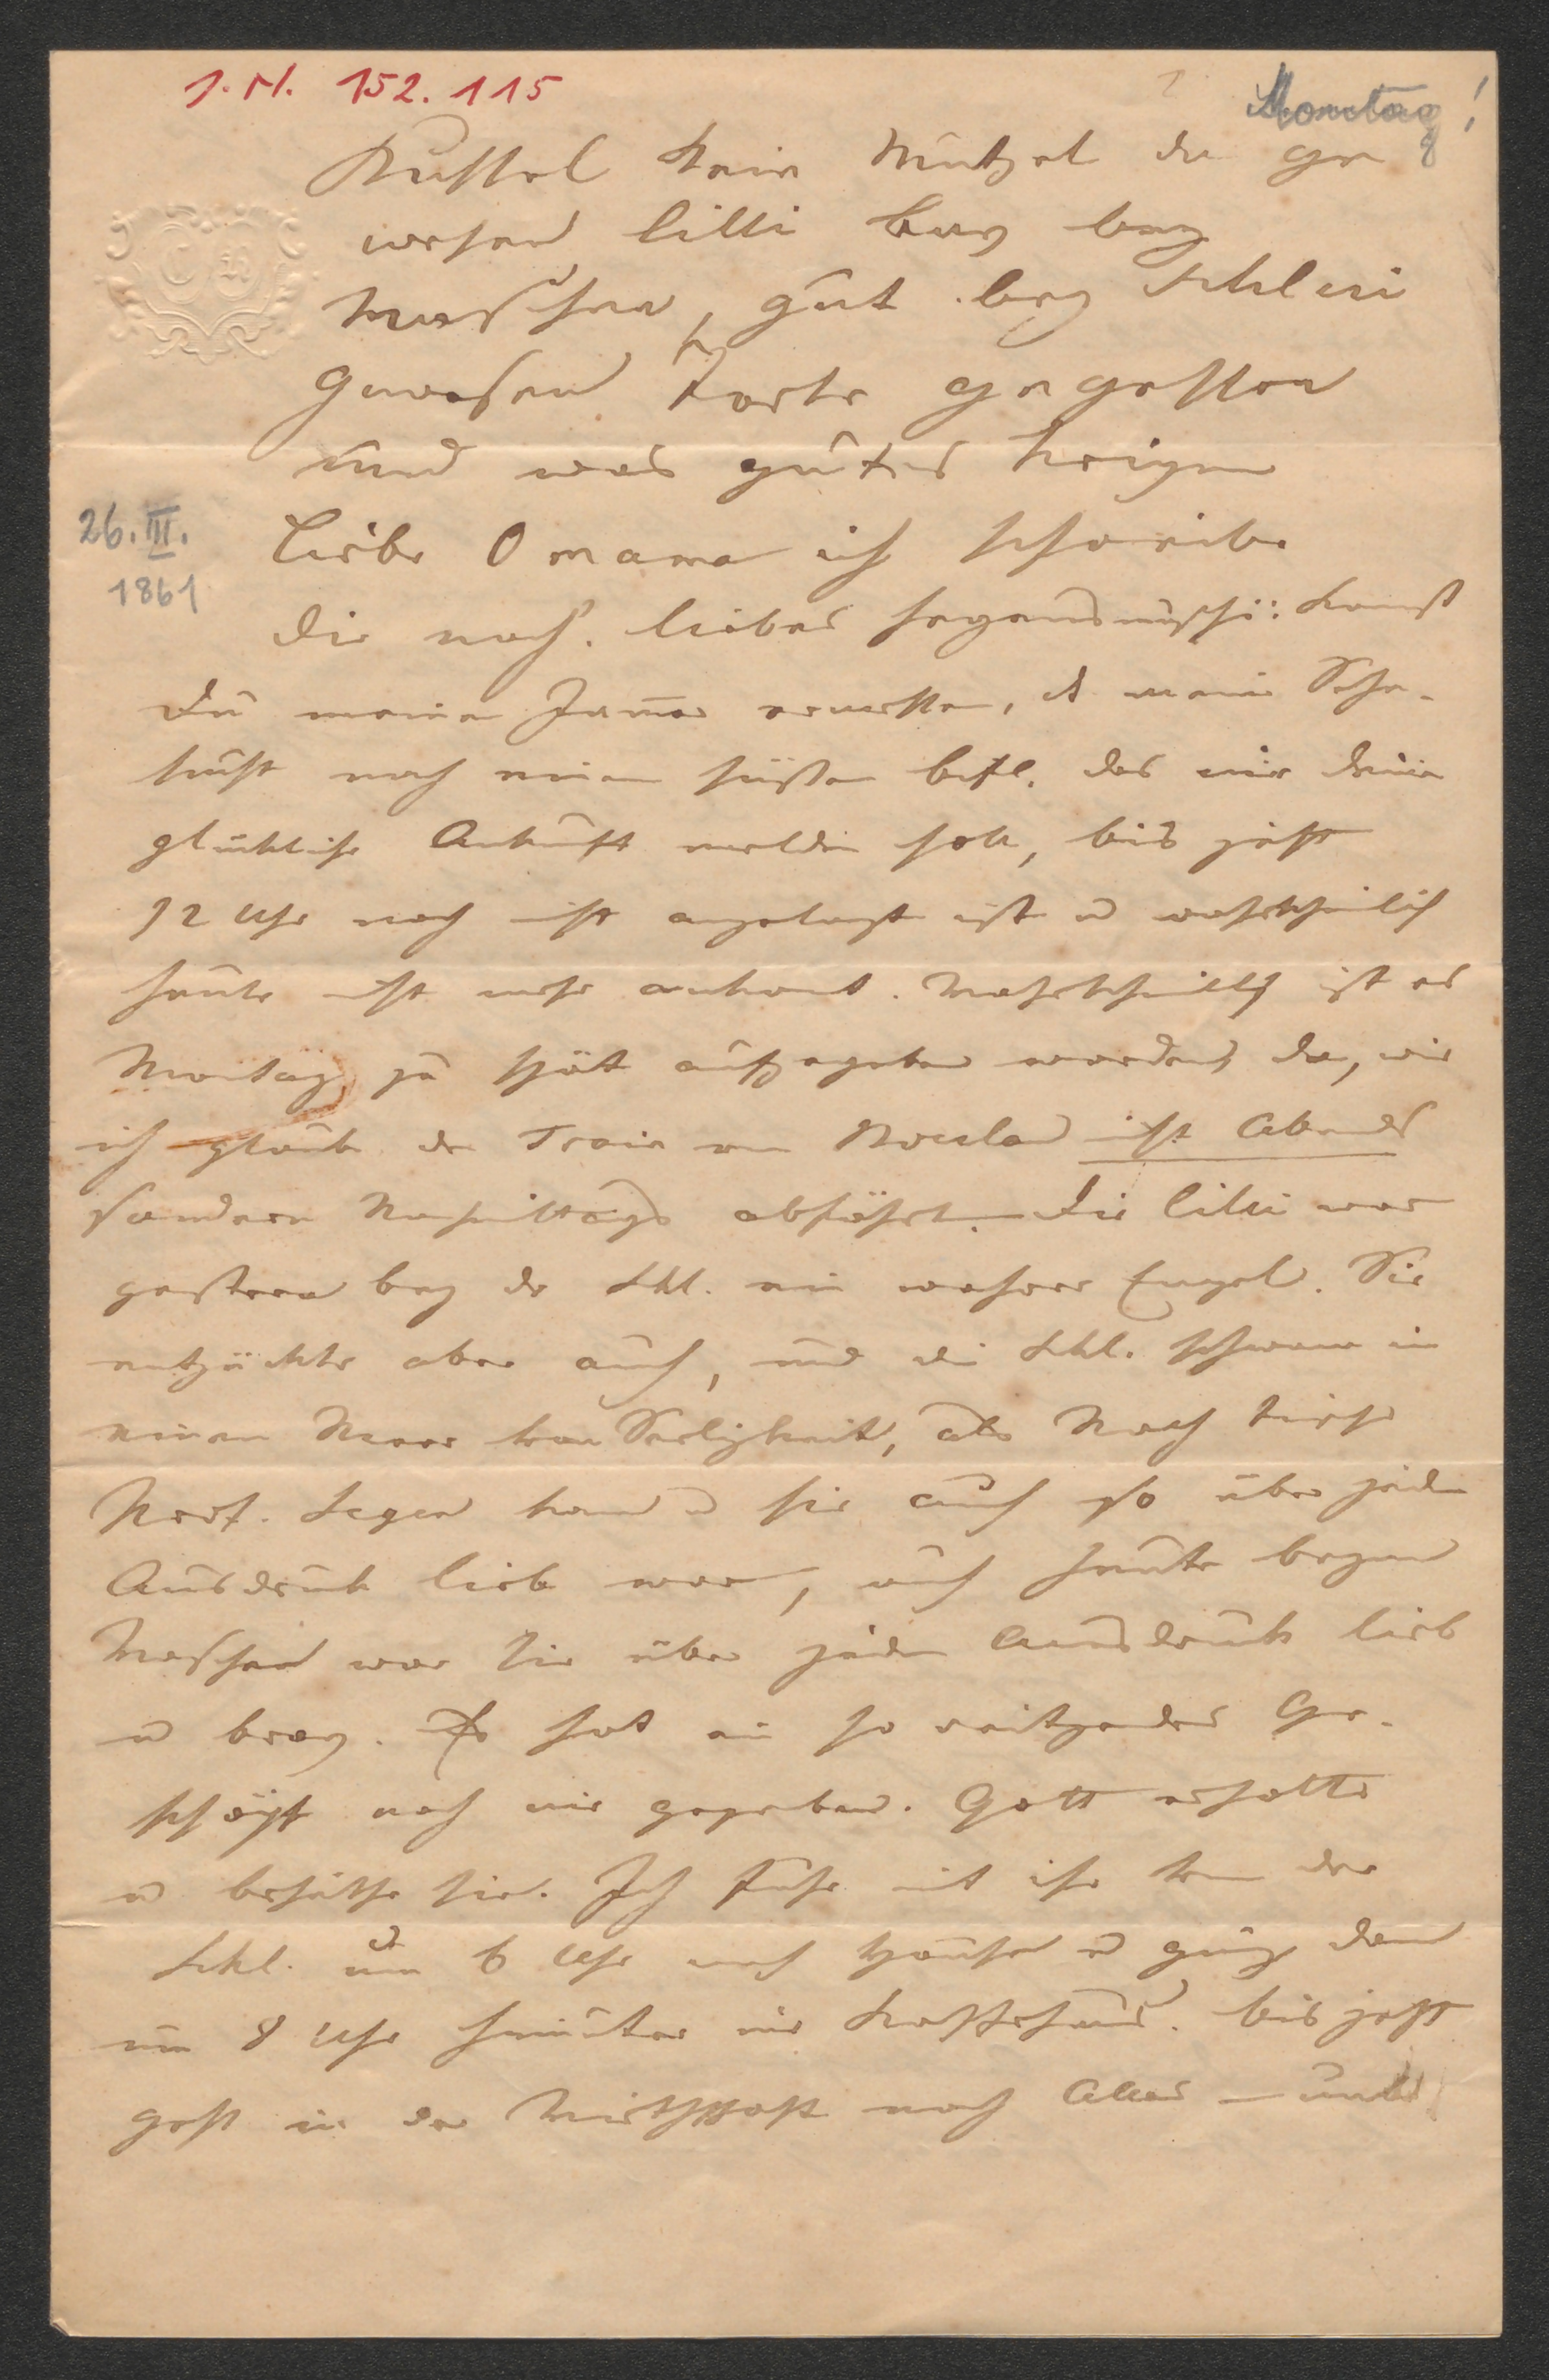 J.N. 152.115
Montag!
Bussel kein Mutzel da ge
wesen Lilli bav bey
waschen, gut bey Schlini
gewesen Torte gegessen
und was gutes kriegen
26. III.
1861
Liebe Omama ich schreibe
dir noch. Liebes : Kannst
Du meinen Jammer ermessen, daß meine Sehn-
sucht nach einem süßen das mir deine
glückliche Ankunft melden soll, bis jetzt
12 Uhr noch nicht angelangt ist u wahrscheinlich
heute nicht mehr ankomt. Wahrscheinlich ist es
Montag zu spät aufgegeben worden, da, wie
ich glaube der Train von Breslau nicht Abends
sondern Nachmittags abfährt. Die Lilli war
gestern bey der Schl. ein wahrer Engel. Sie
entzückte aber auch, und die Schl. schwam in
einem Meer von Seeligkeit, als nach Tische
kam u sie auch so über jeden
Ausdruck lieb war, auch heute beym
Waschen war sie über jeden Ausdruck lieb
u brav. Es hat ein so reitzendes Ge-
nach mir gegeben. Gott erhalte
u behüthe sie. Ich fuhr mit ihr von der
Schl. um 6 Uhr nach Hause u ging dann
um 8 Uhr hinunter ins Kaffehaus. Bis jetzt
geht in der Wirthschaft noch Alles – und